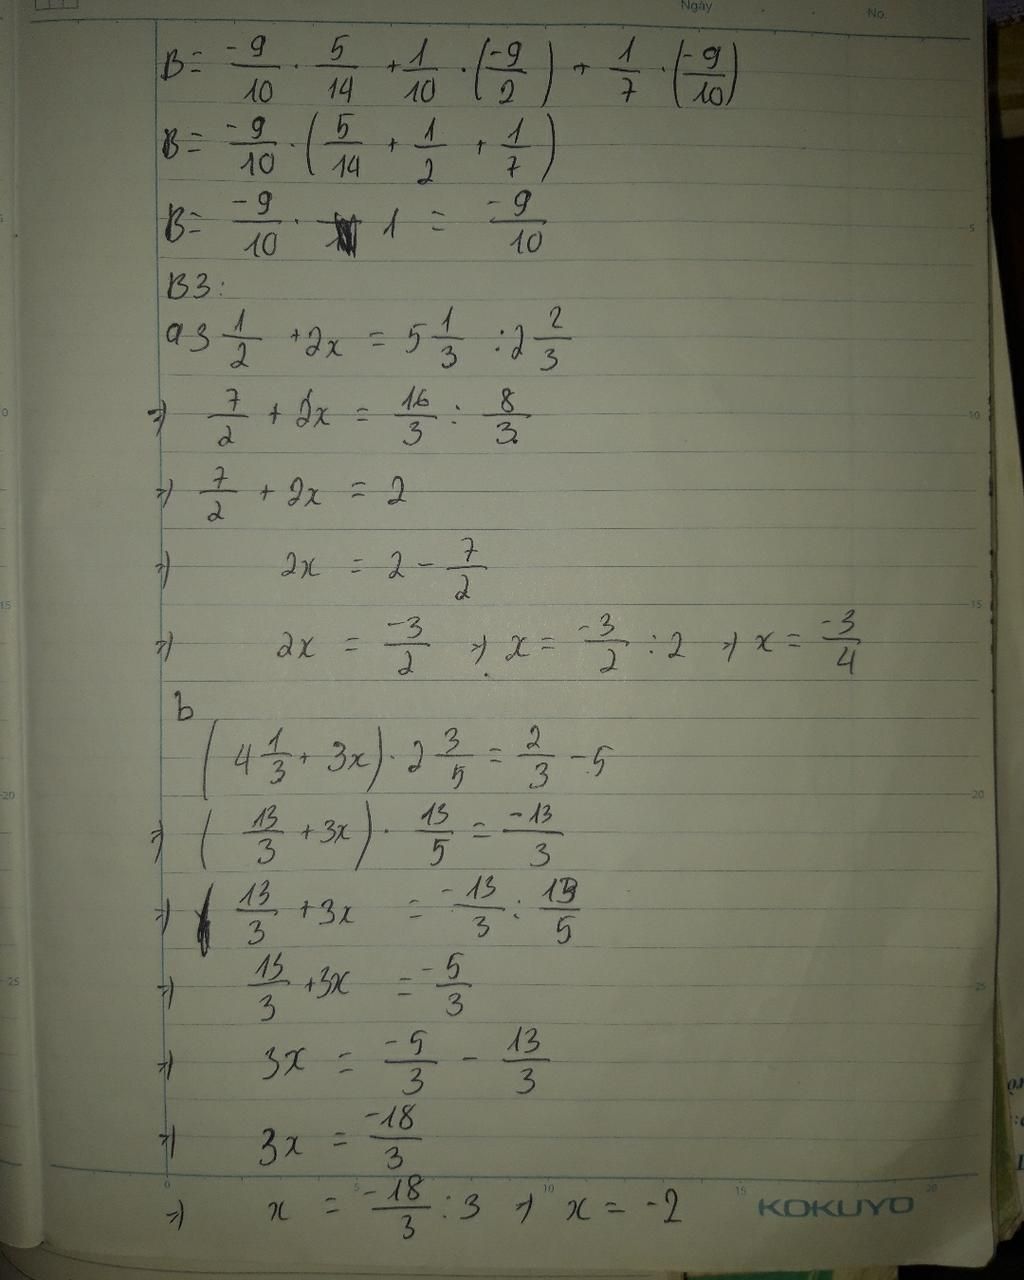 Ngày
No.
B = -9/10 . 5/14 + 1/10 . (-9/2) + 1/7 . (-9/10)
B = -9/10 . (5/14 + 1/2 + 1/7)
B = -9/10 . 1 = -9/10
B3:
a 3 1/2 + 2x = 5 1/3 : 2 2/3
=> 7/2 + 2x = 16/3 : 8/3
=> 7/2 + 2x = 2
=> 2x = 2 - 7/2
=> 2x = -3/2 => x = -3/2 : 2 => x = -3/4
b
(4 1/3 + 3x) . 2 3/5 = 2/3 - 5
=> (13/3 + 3x) . 13/5 = -13/3
=> 13/3 + 3x = -13/3 : 13/5
=> 13/3 + 3x = -5/3
=> 3x = -5/3 - 13/3
=> 3x = -18/3
=> x = -18/3 : 3 => x = -2
KOKUYO